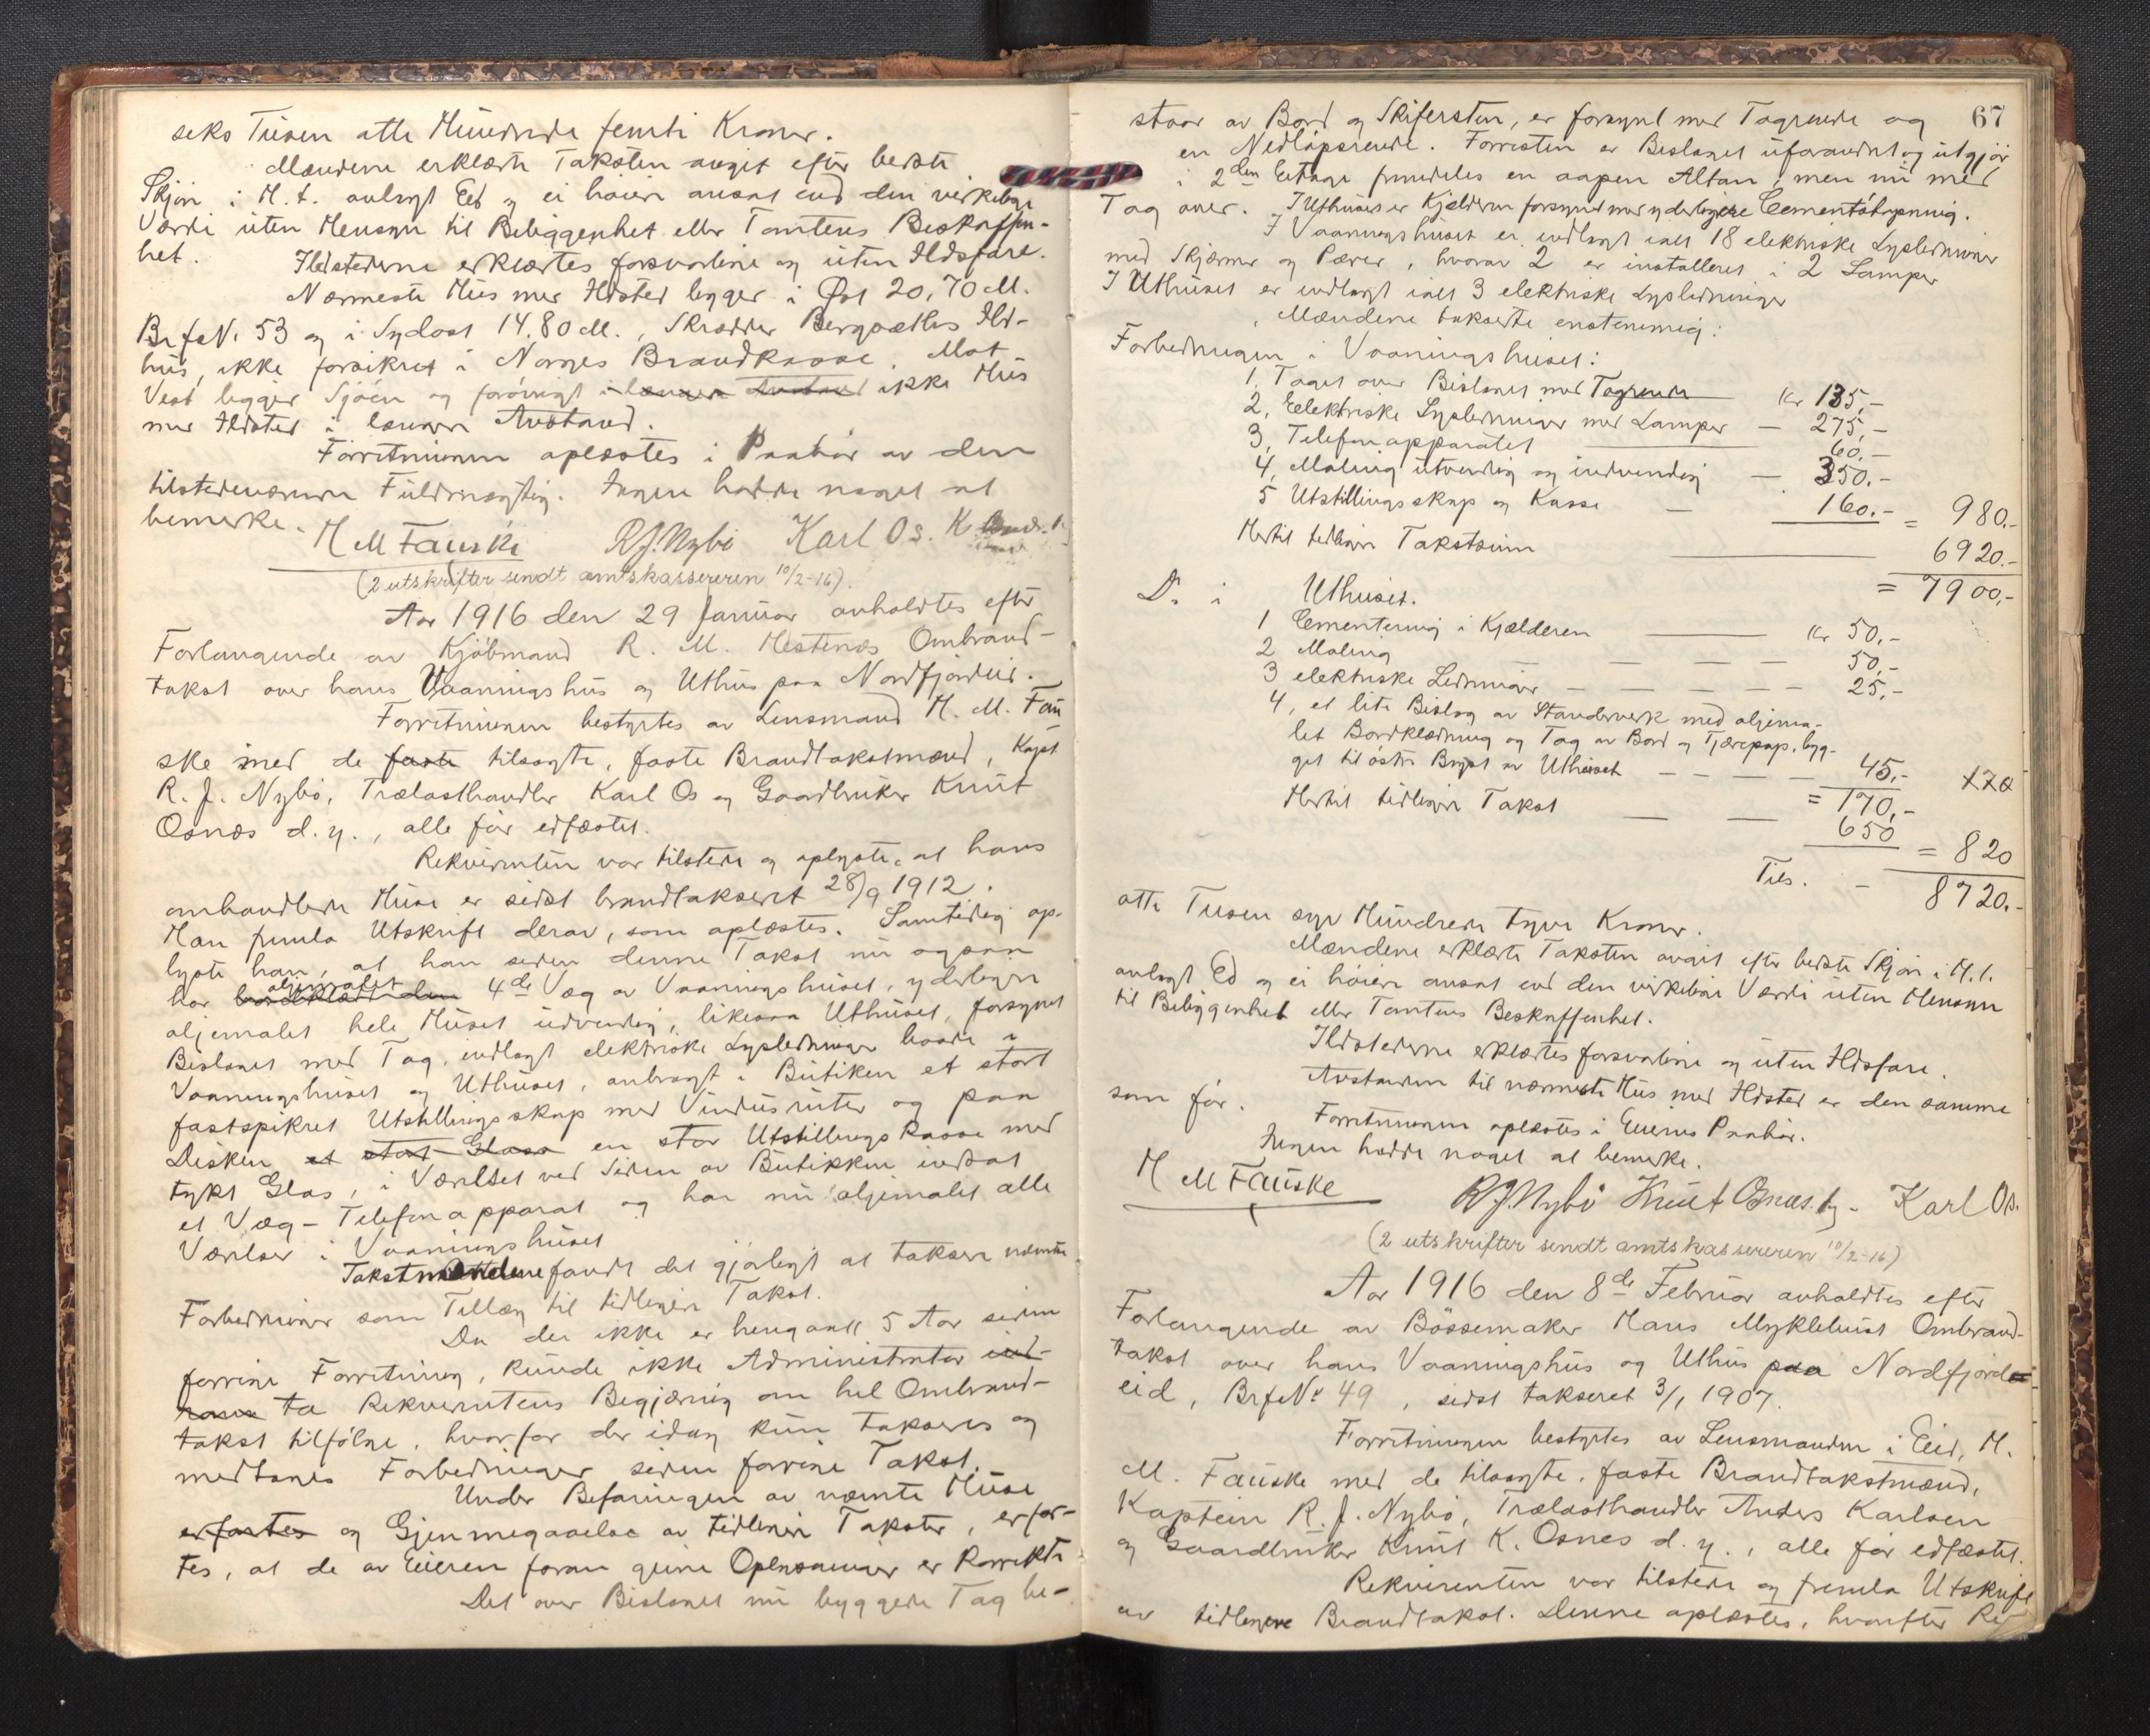 seks Tusen atte Hundrede femti Kroner.
Mændene erklærte Taksten avgit efter bedste
Skjøn i H. t. avlagt Ed og ei høiere ansat end den virkelige
Værdi uten Hensyn til Beliggenhet eller Tomtens Beskaffen-
het.
Ildstederne erklærtes forsvarlige og uten Ildsfare.
Nærmeste Hus med Ildsted ligger i Øst 20,70 M.
BrfNr 53 og i Sydost 14.80 M., Skrædder Bergsæthers Ild-
hus, ikke forsikret i Norges Brandkasse. Mot
Vest ligger Sjøen og forøvrigt i længere Avstand ikke Hus
med Ildsted i længere Avstand.
Forretningen oplæstes i Paahør av den
tilstedeværende Fuldmægtig. Ingen hadde noget at
bemerke.
H M Fauske R J. Nybö Karl Os. K
(2 utskrifter sendt amtskassereren 10/2-16).
Aar 1916 den 29 Januar avholdtes efter
Forlangende av Kjøbmand R. M. Hestenes Ombrand-
takst over hans Vaaningshus og Uthus paa Nordfjordeid.
Forretningen bestyrtes av Lensmand H. M. Fau
ske med de faste tilsagte, faste Brandtakstmænd, Kapt
R. J. Nybö, Trælasthandler Karl Os og Gaardbruker Knut
Osnæs d. y., alle før edfæstet.
Rekvirenten var tilstede og oplyste, at hans
omhandlede Huse er sidst brandtaksert 28/9 1912.
Han fremla Utskrift derav, som oplæstes. Samtidig op-
lyste han, at han siden denne Takst nu ogsaa
oljemalet
har bordklædt den 4de Væg av Vaaningshuset, yderligere
oljemalet hele Huset udvendig, likesaa Uthuset, forsynet
Bislaget med Tag, indlagt elektriske Lysledninger baade i
Vaaningshuset og Uthuset, anbragt i Butiken et stort
fastspikret Utstillingsskap med Vindusruter og paa
Disken et stort Glass en stor Utstillingskasse med
tykt Glas, i Værelset ved Siden av Butikken indsat
et Væg-Telefonapparat og har nu oljemalet alle
Værelser i Vaaningshuset
Takstmændene fandt det gjørligt at taksere nævnte
Forbedringer som Tillæg til tidligere Takst.
Da der ikke er hengaatt 5 Aar siden
forrige Forretning, kunde ikke Administrator ind-
rømme ta Rekvirentens Begjæring om hel Ombrand-
takst tilfølge, hvorfor der idag kun takseres og
medtages Forbedringer siden forrige Takst.
Under Befaringen av nævnte Huse
erfartes og Gjennemgaaelse av tidligere Takster, erfar-
tes, at de av Eieren foran givne Oplysninger er korrekte
Det over Bislaget nu byggede Tag be-
67
staar av Bord og Skifersten, er forsynt med Tagrende og
en Nedløpsrende. Forresten er Bislaget uforandret og utgjør
i 2den Etage fremdeles en aapen Altan, men nu med
Tag over. I Uthuset er Kjælderen forsynet med yderligere Cementstøpning.
I Vaaningshuset er indlagt ialt 18 elektriske Lysledninger
med Skjærmer og Pærer, hvorav 2 er installeret i 2 Lamper
I Uthuset er indlagt ialt 3 elektriske Lysledninger
Mændene takserte enstemmig:
Forbedringen i Vaaningshuset:
1. Taget over Bislaget med Tagrende Kr 135,-
2, Eelektriske Lysledninger med Lamper — 275,-
3, Telefonapparatet 60.-
4, Maling utvendig og indvendig — 350.-
5 Utstillingsskap og Kasse — 160.- = 980.-
Hertil tidligere Takstsum 6920.-
= 7900,-
Do i Uthuset.
1 Cementering i Kjælderen Kr 50.-
2 Maling — — — 50,-
3 elektriske Ledninger — — — — 25,-
4, et lite Bislag av Standerverk med oljema-
let Bordklædning og Tag av Bord og Tjærepap, byg-
get til østre Bryst av Uthuset — — — 45.- 170
= 170,-
Hertil tidligere Takst — — 650 = 820
Tils. — 8720.-
atte Tusen syv Hundrede tyve Kroner.
Mændene erklærte Taksten avgit efter bedste Skjøn i H. t.
avlagt Ed og ei høiere ansat end den virkelige Værdi uten Hensyn
til Beliggenhet eller Tomtens Beskaffenhet.
Ildstederne erklærtes forsvarlige og uten Ildsfare.
Avstanden til nærmeste Hus med Ildsted er den samme
som før.
Forretningen oplæstes i Eierens Paahør.
Ingen hadde noget at bemerke.
H M Fauske R J. Nybö Knut Osnæs. d.y. Karl Os.
(2 utskrifter sendt amtskassereren 10/2-16)
Aar 1916 den 8de Februar avholdtes efter
Forlangende av Bøssemaker Hans Myklebust Ombrand-
takst over hans Vaaningshus og Uthus paa Nordfjord-
eid, BrfNr 49, sidst takseret 3/1 1907.
Forretningen bestyrtes av Lensmanden i Eid, H.
M. Fauske med de tilsagte, faste Brandtakstmænd,
Kaptein R. J. Nybö, Trælasthandler Anders Karlsen
og Gaardbruker Knut K. Osnes d. y., alle før edfæstet.
Rekvirenten var tilstede og fremla Utskrift
av tidligere Brandtakst. Denne oplæstes, hvorefter Re-